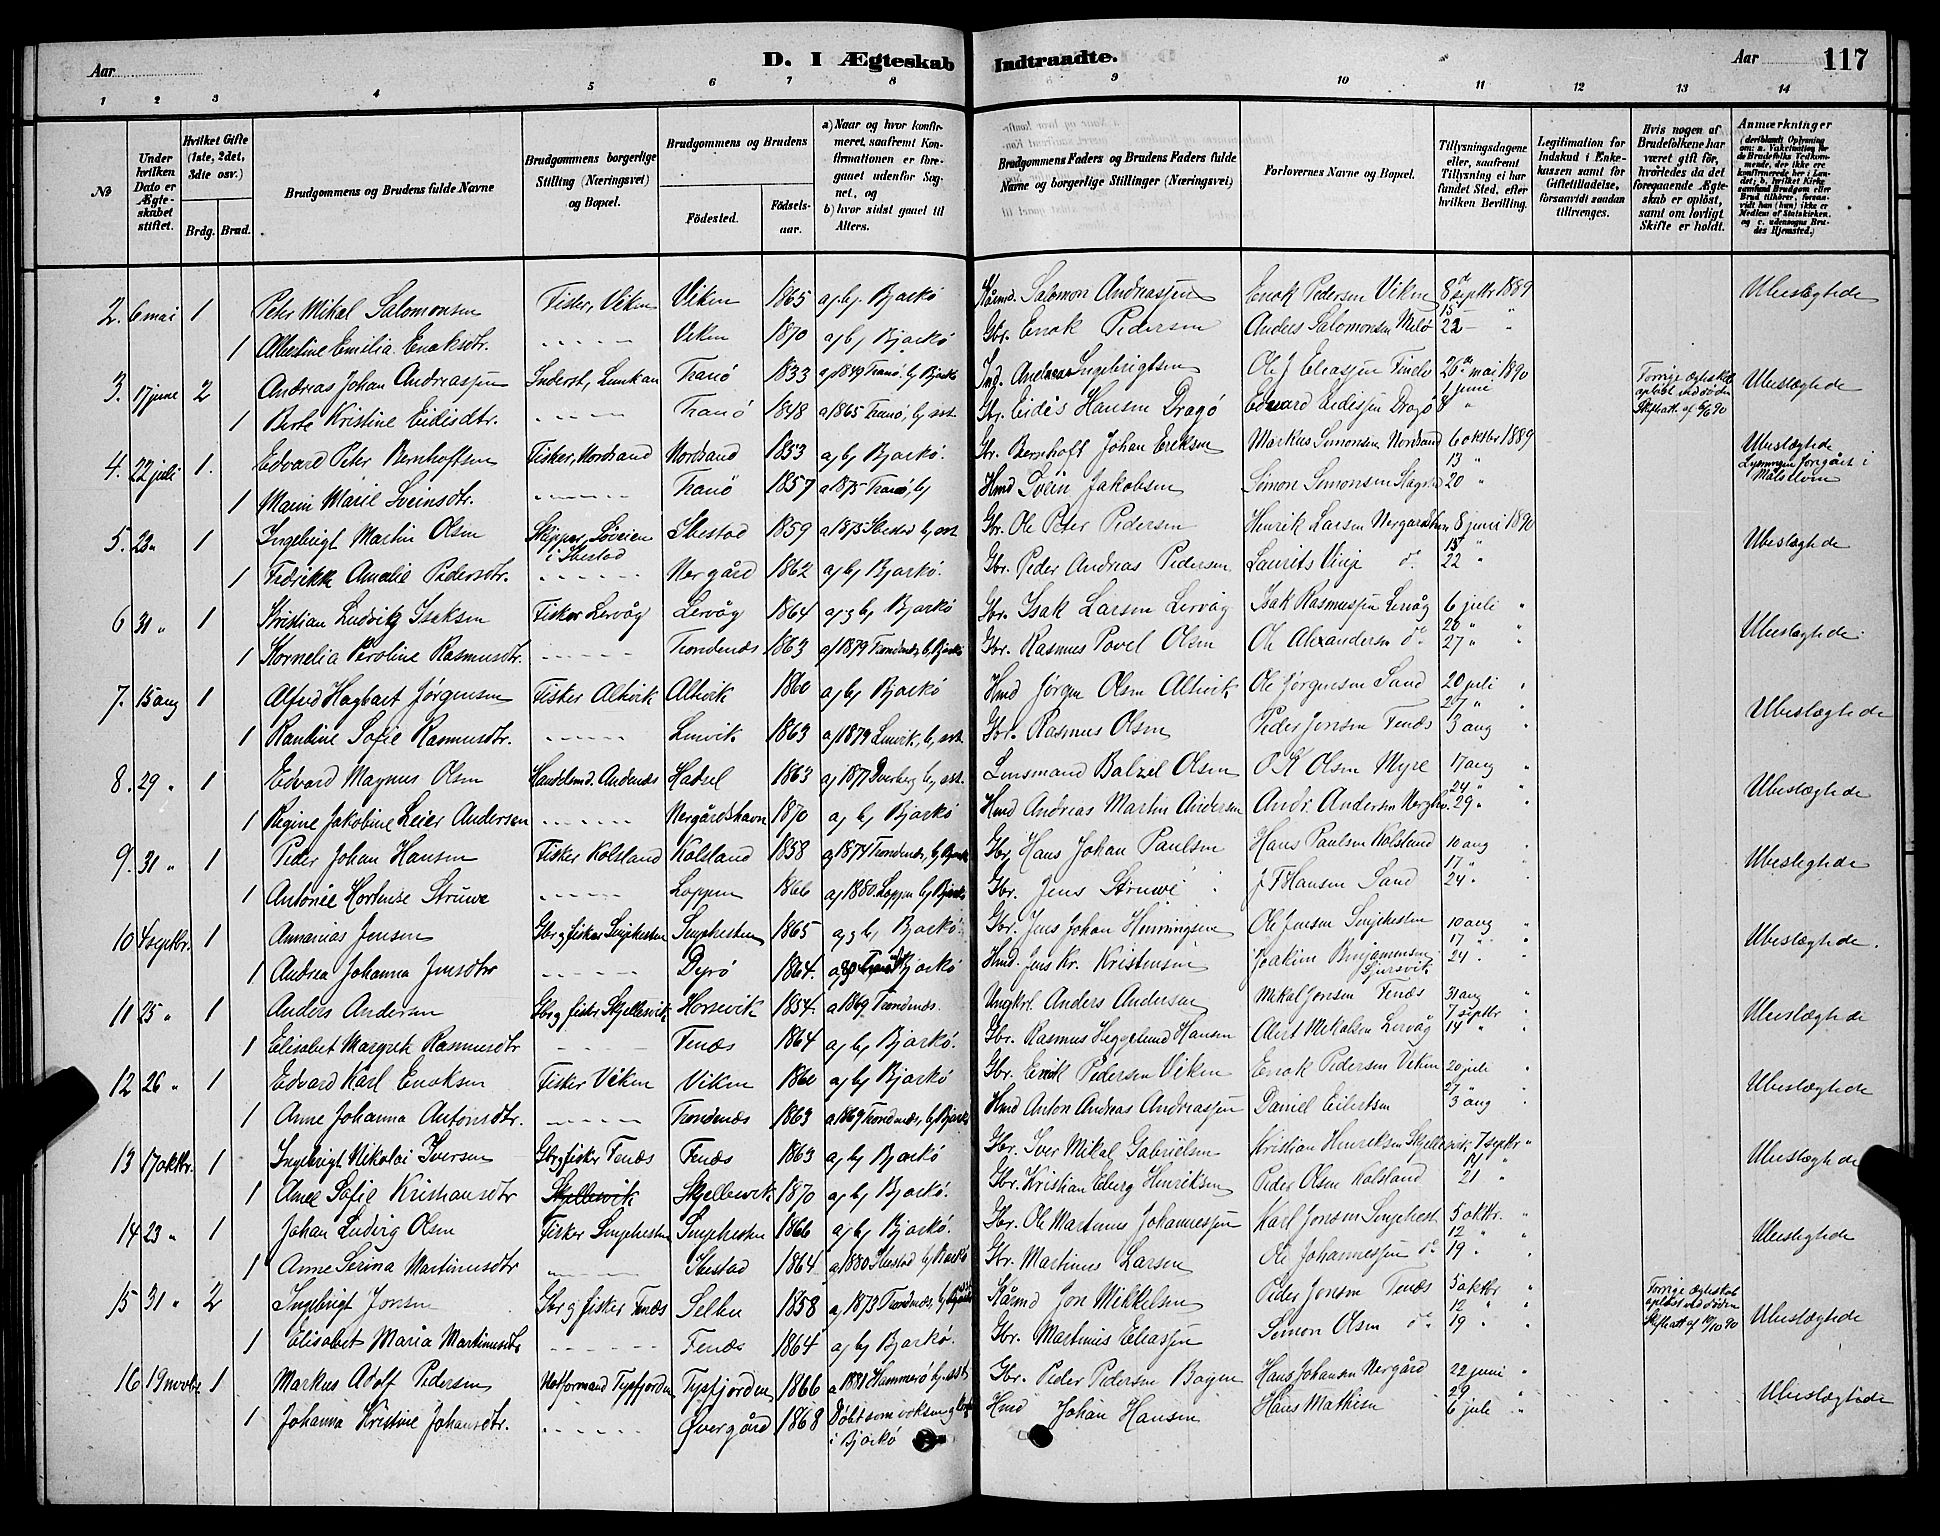 Aar
D. I Ægteskab Indtraadte.
Aar 117
1 2 3 4 5 6 7 8 9 10 11 12 13 14
No
Under hvilken Dato er Ægteskabet stiftet.
Hvilket Gifte (1ste, 2det, 3die osv.)
Brdg. Brud.
Brudgommens og Brudens fulde Navne
Brudgommens borgerlige Stilling (Næringsvei) og Bopæl.
Brudgommens og Brudens
Fødested. Fødselsaar.
a) Naar og hvor konfirmeret, saafremt Konfirmationen er foregaaet udenfor Sognet, og
b) hvor sidst gaaet til Alters.
Brudgommens Faders og Brudens Faders fulde Navne og borgerlige Stillinger (Næringsvei)
Forlovernes Navne og Bopæl.
Tillysningsdagene eller, saafremt Tillysning ei har fundet Sted, efter hvilken Bevilling.
Legitimation for Indskud i Enkekassen samt for Giftetilladelse, forsaavidt saadan tiltrænges.
Hvis nogen af Brudefolkene har været gift før, hvorledes da det foregaaende Ægteskab er opløst, samt om lovligt Skifte er holdt.
Anmærkninger
2. 6 mai 1 Peter Mikal Salomonsen Fisker, Viken Viken 1865 a, b, Bjarkö Salomon Andreassen Enok Pedersen Viken 8de septbr 1889 Ubeslægtede
1 Albertine Emilia Enoksdtr. Viken 1870 a, b, Bjarkö Gbr. Enok Pedersen Anders Salomonsen Melö 15 22 "
3. 17 june 2 Andreas Johan Andreassen Inderst, Lunkan Tranö 1833 a 1849 Tranö, b, Bjarkö Ind. Andreas Ingebrigtsen Ole J Eliassen 26de mai 1890 Forrige ægteskab opløst ved døden Skifteatt. af 6/6 90 Ubeslægtede
1 Berte Kristine Eidisdtr. Tranö 1848 a 1865 Tranö, b, sst. Gbr. Eidis Hansen Dragö Edvard Eidissen Dragö 1 juni 8 "
4. 22 juli 1. Edvard Peter Bernhoftsen Fisker, Nordsand Nordsand 1853 a, b, Bjarkö. Gbr. Bernhoft Johan Eriksen Markus Simonsen Nordsand 6 oktbr 1889 Ubeslægtede Lysningen foregået i Målselven
1 Marie Sveinsdtr. Tranö 1857 a 1875 Tranö, b, Hmd Svein Jakobsen Simon Simonsen 13 " 20 "
5. 23 " 1 Ingebrigt Martin Olsen Skipper, Løveien i Ibestad Ibestad 1859 a 1875 Ibestad b, sst Gbr. Ole Peter Pedersen Henrik Larsen 8 juni 1890 Ubeslægtede
1 Fedrikke Amalie Pedersdtr. Nergård 1862 a, b, Bjarkö. Gbr. Peder Andreas Pedersen Laurits Vinje do 15 " 22 "
6 31 " 1 Kristian Ludvig Isaksen Fisker Lervåg Lervåg 1864 a, b, Bjarkö Gbr. Isak Larsen Lervåg Isak Rasmussen Lervåg 6 juli " Ubeslægtede.
1 Kornelia Peroline Rasmusdtr. Trondenæs 1863 a 1879 Trondenæs, b, Bjarkö Gbr. Rasmus Povel Olsen Ole Alexandersen do 20 " 27 "
7. 15 aug 1 Alfred Hagbart Jørgensen Fisker Altevik Altevik 1860 a, b, Bjarkö Hmd Jørgen Olsen Altevik Ole Jørgensen Sand 20 juli " Ubeslægtede
1 Rantine Sofie Rasmusdtr. Lenvik 1863 a 1879 Lenvik, b, sst. Gbr. Rasmus Olsen Peder Jensen Fenæs 27 " 3 aug "
8. 29 " 1 Edvard Magnus Olsen Handelsmd. Andenæs Hadsel 1863 a, 1877 Dverberg b, sst. Lensmand Balzel Olsen O K Olsen Myre 17 aug " Ubeslægtede
1 Regine Jakobine Leier Andersen Nergårdshavn 1870 a, b, Bjarkö Hmd Andreas Martin Andersen Andr. Andersen 24 " 29 "
9. 31 " 1 Peder Johan Hansen Fisker Kolsland Kolsland 1858 a, 1874 Trondenæs, b, Bjarkö Gbr. Hans Johan Paulsen Hans Paulsen Kolsland 10 aug " Ubeslegtede
1 Antonie Hortense Struwe Loppen 1866 a, 1880 Loppen b, Bjarkö Gbr. Jens Struwe J F Hansen Sand 17 " 24 "
10 4 septbr. 1 Annanias Jensen Gbr g fisker Senjehesten Senjehesten 1865 a, b, Bjarkö Gbr. Jens Johan Henningsen Ole Jensen Senjehesten 10 aug " Ubeslægtede.
1 Andrea Johanna Jensdtr Dyrö 1864. Bjarkö Hmd. Jens Kr. Kristensen Joakim Benjaminsen 17 " 24 "
11 25 " 1 Anders Andersen Gbr g fisker Skjellesvik Horsevik 1854 a 1869 Trondenæs. Ungkrl. Anders Andersen Mikal Jensen Fenæs 31 aug " Ubeslægtede
1 Elisabet Margrete Rasmusdtr Fenæs 1864 a, b, Bjarkö. Gbr. Rasmus Heggelund Hansen Mikalsen Lervåg 7 septbr " 14 "
12 26 " 1 Edvard Karl Enoksen Fisker Viken Viken 1860 a, b, Bjarkö Gbr. Enok Pedersen Viken Enok Pedersen Viken 20 juli " Ubeslægtede
1 Anne Johanna Antonsdtr. Trondenæs 1863 a 1869 Trondenæs, b, Bjarkö Hmd Anton Andreas Andreassen Daniel Eilertsen 27 " 3 aug "
13 17 oktbr. 1 Ingebrigt Nikolai Iversen Gbr g fisker Fenæs Fenæs 1863 a, b, Bjarkö Gbr. Iver Mikal Gabrielsen Kristian Henriksen Skjellesvik 7 septbr " Ubeslægtede
1 Anne Sofie Kristiansdtr Skjellesvik Skjellesvik 1870 a, b, Bjarkö. Gbr. Kristian Henriksen Peder Olsen Kolsland 14 " 21 "
14 23 " 1 Johan Ludvig Olsen Fisker Senjehesten Senjehesten 1866 a, b, Bjarkö. Gbr. Ole Martinus Johannessen Karl Jensen Senjehest 5 oktbr. " Ubeslegtede
1 Anne Serina Martinusdtr Ibestad 1864 a, 1880 Ibestad b, Bjarkö Gbr. Martinus Larsen Ole Johannessen do 12 " 19 "
15 31 " 2 Ingebrigt Jonsen Gbr g fisker Fenæs Selbu 1858 a, 1873 Trondenæs, b, Jon Mikkelsen Peder Jensen Fenæs 5 oktbr " Forrige ægteskab opløst ved døden Skifteatt af 17/10 90 Ubeslægtede
1 Elisabet Maria Martinusdtr Fenæs 1864 a, b, Bjarkö. Gbr. Martinus Eliassen Simon Olsen do 12 " 19 "
16 19 novbr 1 Markus Adolf Pedersen Tysfjorden Tysfjorden 1866 a 1881 Hammerö b, sst Gbr. Peder Pedersen Bogen Hans Johansen Nergård 22 juni " Ubeslægtede
1 Johanna Kristine Johansdtr. Øvergård 1868 Döbt som voksen i Bjarkö Hmd Johan Hansen Hans Mathisen 29 " 6 juli "